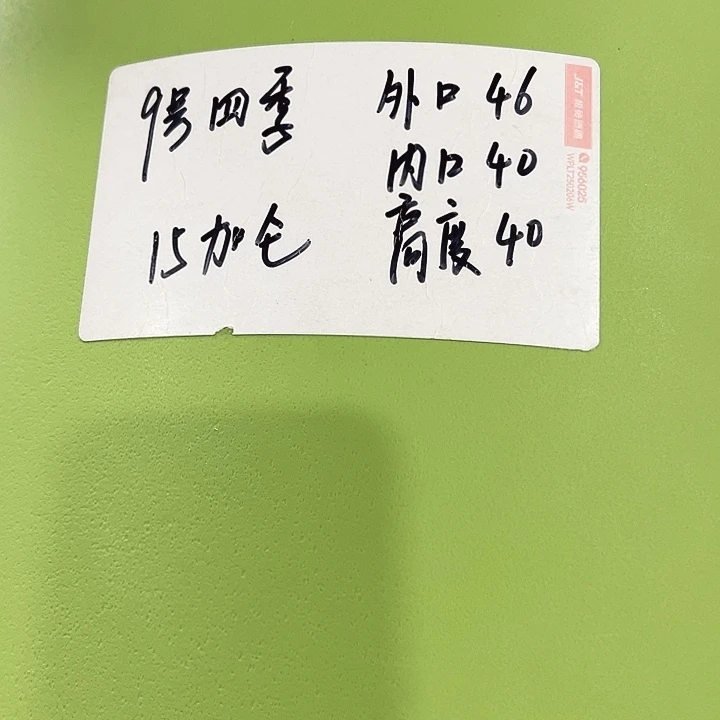 9号四季
15加仑
外口 46
内口 40
高度 40
J&T 极兔速递
956025
WPLTZ50206W